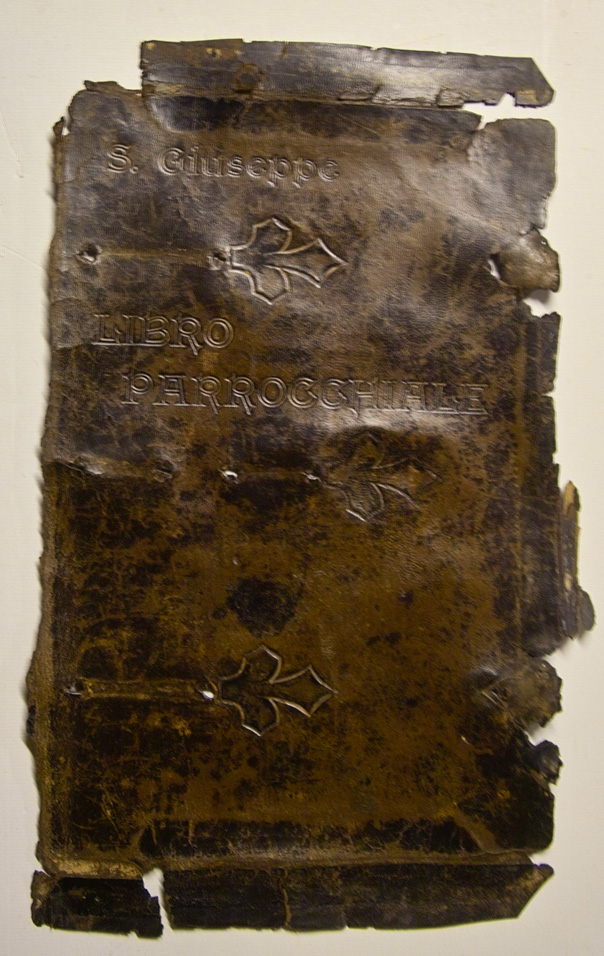 S. Giuseppe
LIBRO
PARROCCHIALE